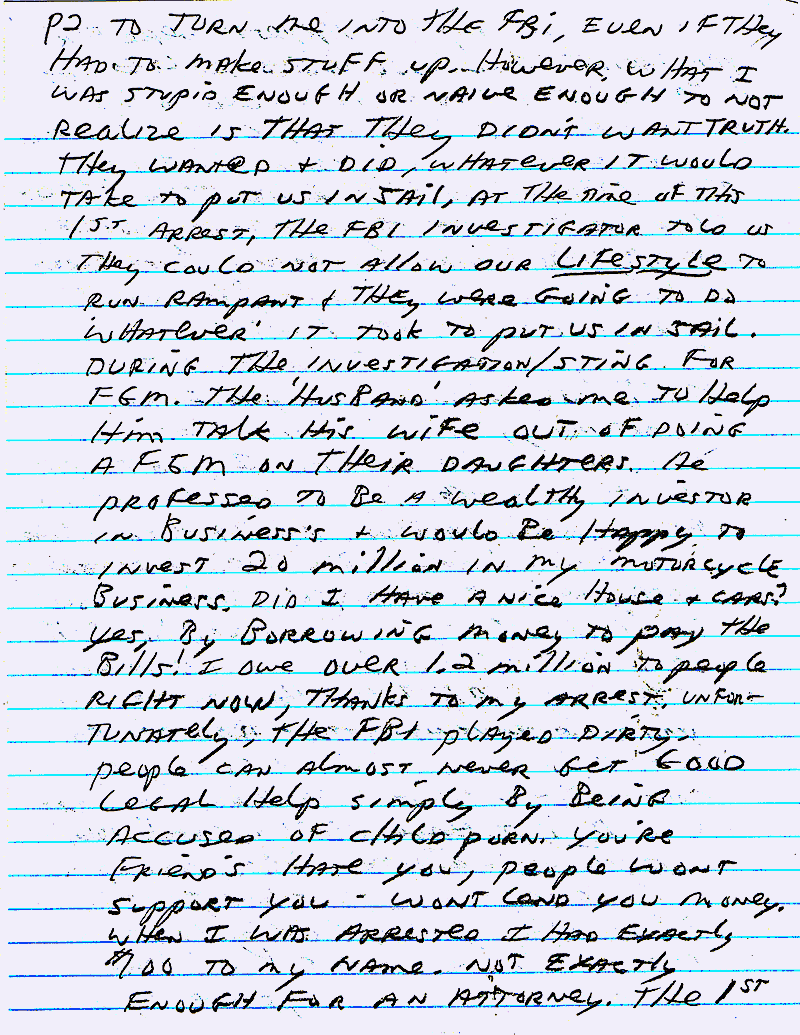 P2 TO TURN ME INTO THE FBI, EVEN IF THEY
HAD TO MAKE STUFF UP. HOWEVER, WHAT I
WAS STUPID ENOUGH OR NAIVE ENOUGH TO NOT
REALIZE IS THAT THEY DIDN'T WANT TRUTH.
THEY WANTED & DID, WHATEVER IT WOULD
TAKE TO PUT US IN JAIL, AT THE TIME OF THIS
1ST ARREST, THE FBI INVESTIGATOR TOLD US
THEY COULD NOT ALLOW OUR LIFESTYLE TO
RUN RAMPANT & THEY WERE GOING TO DO
'WHATEVER' IT TOOK TO PUT US IN JAIL.
DURING THE INVESTIGATION/STING FOR
FGM. THE 'HUSBAND' ASKED ME TO HELP
HIM TALK HIS WIFE OUT OF DOING
A FGM ON THEIR DAUGHTERS. HE
PROFESSED TO BE A WEALTHY INVESTOR
IN BUSINESS'S & WOULD BE HAPPY TO
INVEST 20 MILLION IN MY MOTORCYCLE
BUSINESS. DID I HAVE A NICE HOUSE & CARS?
YES, BY BORROWING MONEY TO PAY THE
BILLS! I OWE OVER 1.2 MILLION TO PEOPLE
RIGHT NOW, THANKS TO MY ARREST. UNFOR-
TUNATELY, THE FBI PLAYED DIRTY.
PEOPLE CAN ALMOST NEVER GET GOOD
LEGAL HELP SIMPLY BY BEING
ACCUSED OF CHILD PORN. YOU'RE
FRIEND'S HATE YOU, PEOPLE WONT
SUPPORT YOU - WONT LEND YOU MONEY.
WHEN I WAS ARRESTED I HAD EXACTLY
$100 TO MY NAME. NOT EXACTLY
ENOUGH FOR AN ATTORNEY. THE 1ST